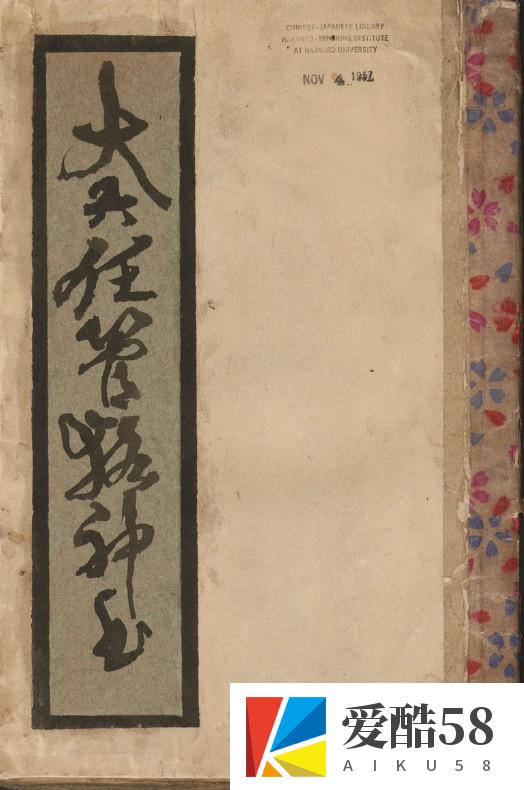 CHINESE-JAPANESE LIBRARY
HARVARD-YENCHING INSTITUTE
AT HARVARD UNIVERSITY
NOV 4 1957
大六任管輅神書
爱酷58
AIKU58